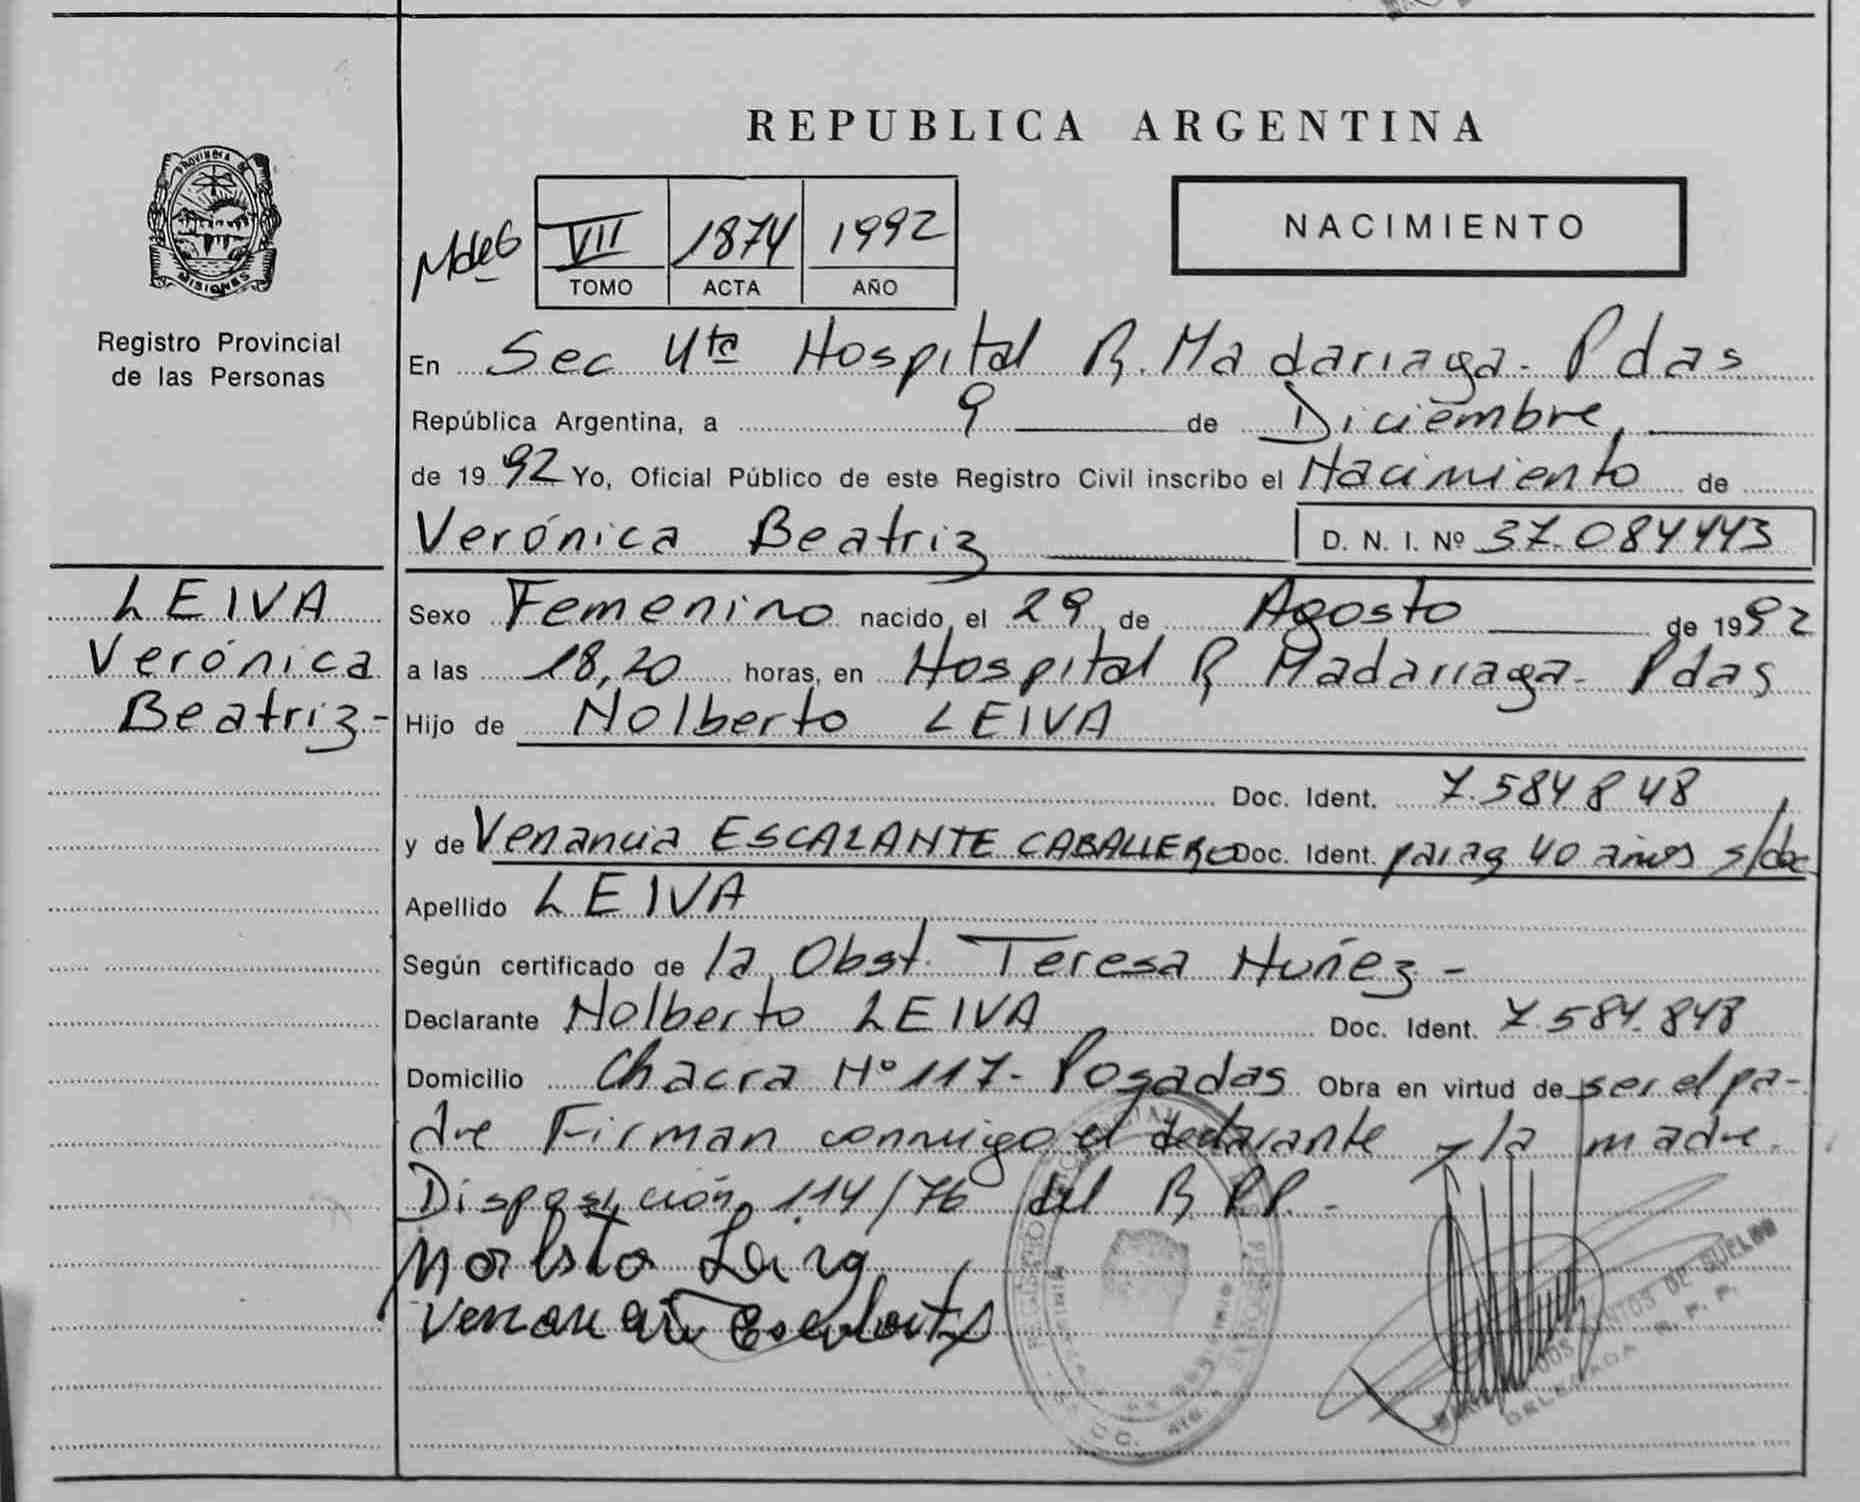 REPUBLICA ARGENTINA
NACIMIENTO
PROVINCIA DE
MISIONES
Registro Provincial
de las Personas
VII 1874 1992
TOMO ACTA AÑO
En Sec 4ta Hospital R. Madariaga - Pdas
República Argentina, a 9 de Diciembre,
de 1992 Yo, Oficial Público de este Registro Civil inscribo el Nacimiento de
Verónica Beatriz D. N. I. Nº 37.084443
LEIVA
Verónica
Beatriz-
Sexo Femenino nacido el 29 de Agosto de 1992
a las 18,20 horas, en Hospital R Madariaga - Pdas
Hijo de Nolberto LEIVA
Doc. Ident. 7.584848
y de Venancia ESCALANTE CABALLERO Doc. Ident. parag 40 años s/doc
Apellido LEIVA
Según certificado de la Obst. Teresa Nuñez -
Declarante Nolberto LEIVA Doc. Ident. 7.584.848
Domicilio Chacra Nº 117- Posadas Obra en virtud de ser el pa-
dre Firman conmigo el declarante y la madre.
Disposición 114/76 del R.P.P. -
Venancia
DELEGADA R. P. P.